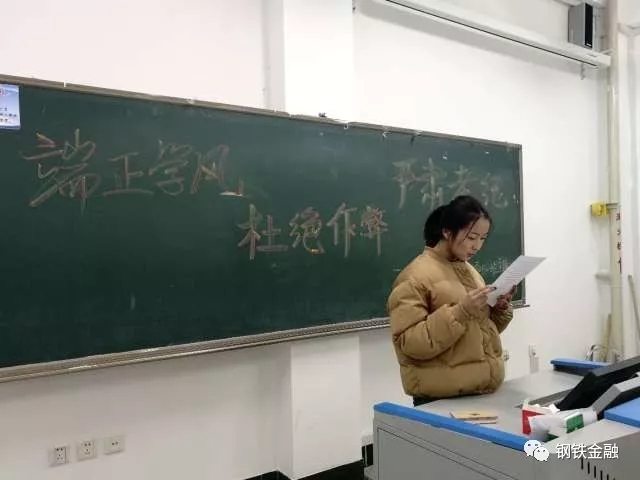 端正学风、
严肃考纪、
杜绝作弊
钢铁金融